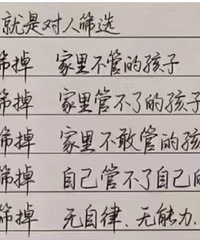 就是对人筛选
筛掉 家里不管的孩子
筛掉 家里管不了的孩子
筛掉 家里不敢管的孩
筛掉 自己管不了自己的
筛掉 无自律、无能力、